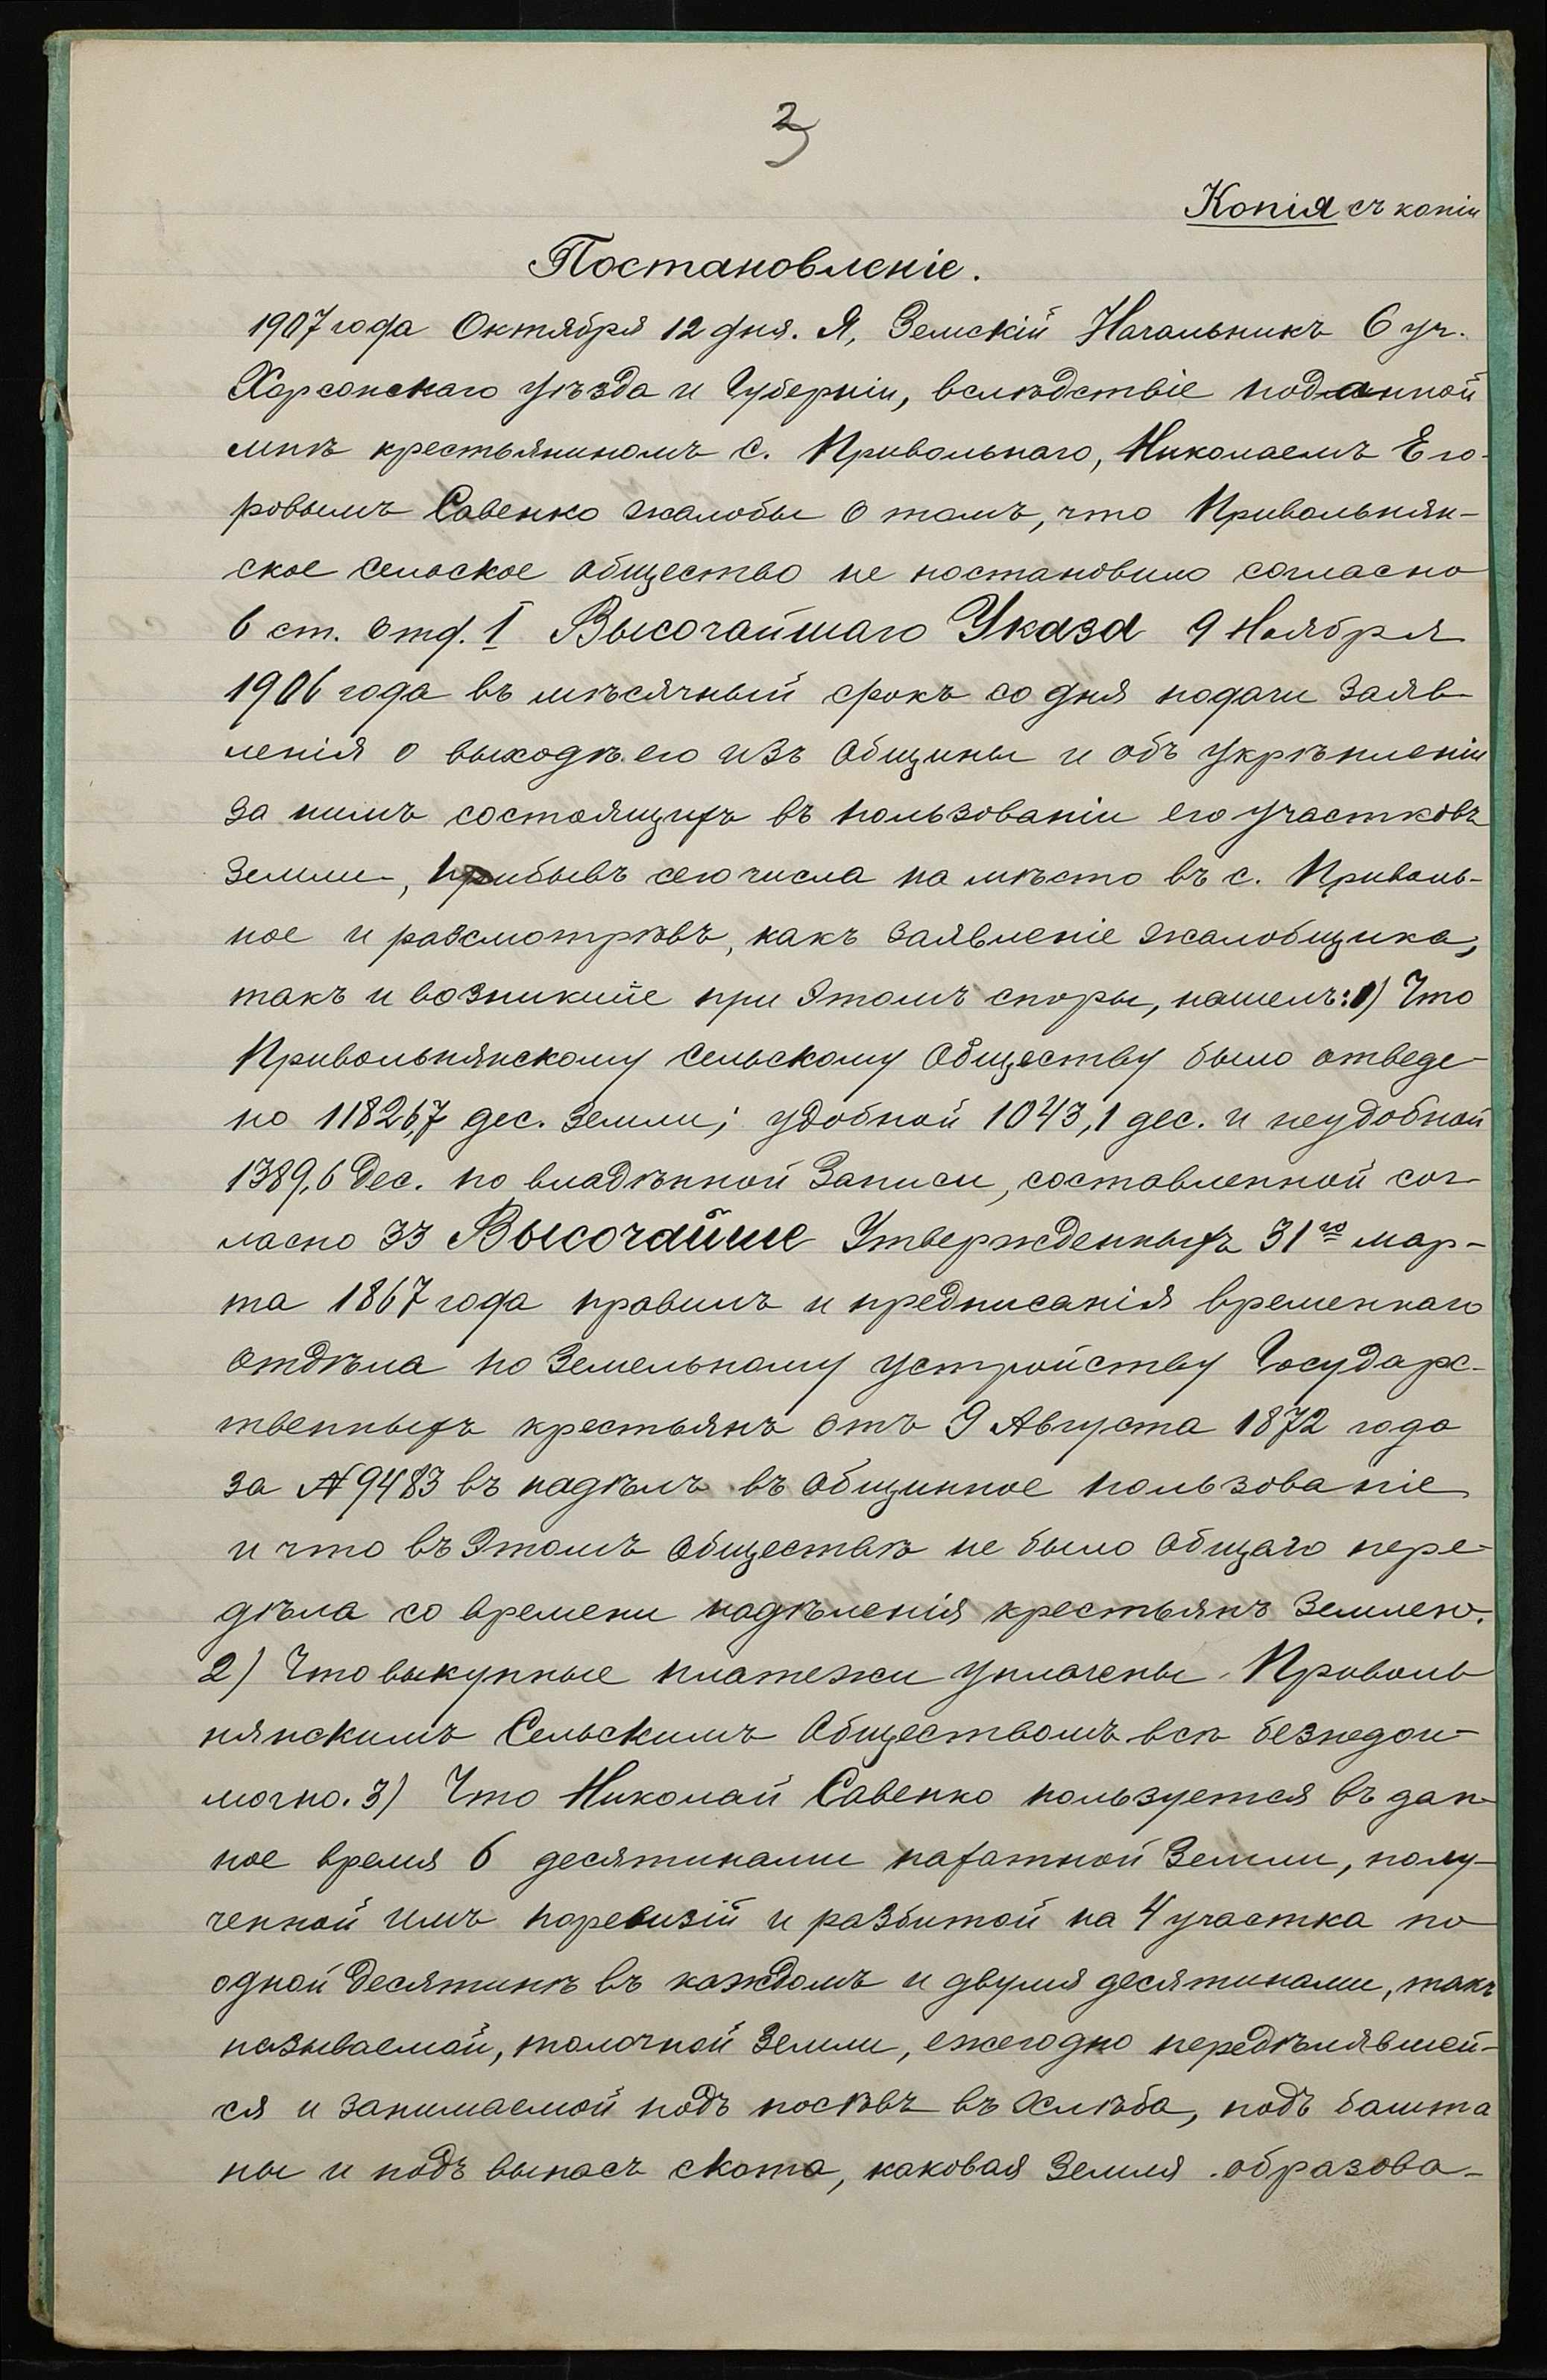 2
Копія съ копіи
Постановленіе.
1907 года Октября 12 дня. Я, Земскій Начальникъ 6 уч.
Херсонскаго уѣзда и Губерніи, вслѣдствіе поданной
мнѣ крестьяниномъ с. Привольнаго, Николаемъ Его-
ровымъ Савенко жалобы о томъ, что Привольнян-
ское сельское общество не постановило согласно
6 ст. отд. I Высочайшаго Указа 9 Ноября
1906 года въ мѣсячный срокъ со дня подачи заяв-
ленія о выходѣ его изъ общины и объ укрѣпленіи
за нимъ состоящихъ въ пользованіи его участковъ
земли, прибывъ сего числа на мѣсто въ с. Приволь-
ное и разсмотрѣвъ, какъ заявленіе жалобщика,
такъ и возникшіе при этомъ споры, нашелъ: 1) Что
Привольнянскому сельскому Обществу было отведе-
но 11826,7 дес. земли; удобной 1043,1 дес. и неудобной
1389,6 дес. по владѣнной записи, составленной сог-
ласно 33 Высочайше Утвержденныхъ 31го мар-
та 1867 года правилъ и предписанія временнаго
отдѣла по земельному устройству Государс-
твенныхъ крестьянъ отъ 9 Августа 1872 года
за № 9483 въ надѣлъ въ общинное пользованіе
и что въ этомъ обществѣ не было общаго пере-
дѣла со времени надѣленія крестьянъ землею.
2) Что выкупные платежи уплачены Приволь
нянскимъ Сельскимъ Обществомъ всѣ безнедои-
мочно. 3) Что Николай Савенко пользуется въ дан-
ное время 6 десятинами пахатной земли, полу-
ченной имъ поревизій и разбитой на 4 участка по
одной десятинѣ въ каждомъ и двумя десятинами, такъ
называемой, толочной земли, ежегодно передѣлявшей-
ся и занимаемой подъ посѣвъ въ хлѣба, подъ башта
ны и подъ выпасъ скота, каковая земля образова-